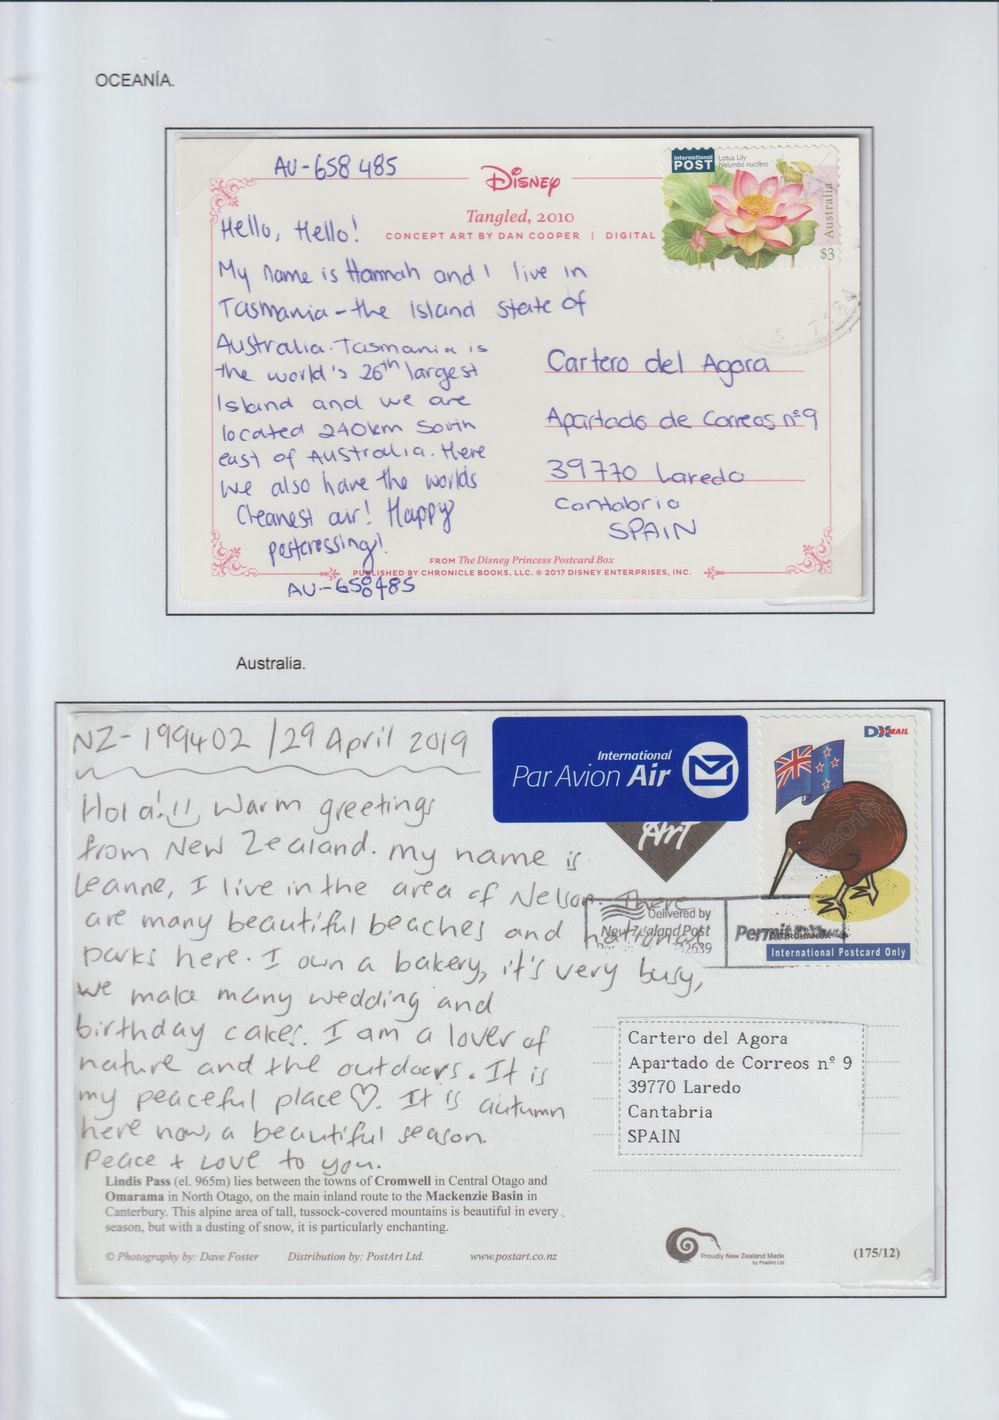 OCEANÍA.
AU-658 485
DISNEY
Tangled, 2010
CONCEPT ART BY DAN COOPER | DIGITAL
International POST
Lotus Lily
Nelumbo nucifera
Australia
$3
Hello, Hello!
My name is Hannah and I live in
Tasmania - the island state of
Australia. Tasmania is
the world's 26th largest
Island and we are
located 240km South
east of Australia. Here
we also have the worlds
Cleanest air! Happy
postcrossing!
AU-658485
Cartero del Agora
Apartado de Correos nº9
39770 Laredo
Cantabria
SPAIN
FROM The Disney Princess Postcard Box
PUBLISHED BY CHRONICLE BOOKS, LLC. © 2017 DISNEY ENTERPRISES, INC.
Australia.
NZ-199402 / 29 April 2019
Hola! Warm greetings
from New Zealand. my name is
Leanne, I live in the area of Nelson. There
are many beautiful beaches and national
parks here. I own a bakery, it's very busy,
we make many wedding and
birthday cakes. I am a lover of
nature and the outdoors. It is
my peaceful place♡. It is autumn
here now, a beautiful season.
Peace + Love to you.
International
Par Avion Air
Art
DX MAIL
Delivered by
New Zealand Post
Permit
International Postcard Only
Cartero del Agora
Apartado de Correos nº 9
39770 Laredo
Cantabria
SPAIN
Lindis Pass (el. 965m) lies between the towns of Cromwell in Central Otago and
Omarama in North Otago, on the main inland route to the Mackenzie Basin in
Canterbury. This alpine area of tall, tussock-covered mountains is beautiful in every
season, but with a dusting of snow, it is particularly enchanting.
© Photography by: Dave Foster Distribution by: PostArt Ltd. www.postart.co.nz
Proudly New Zealand Made
by PostArt Ltd
(175/12)